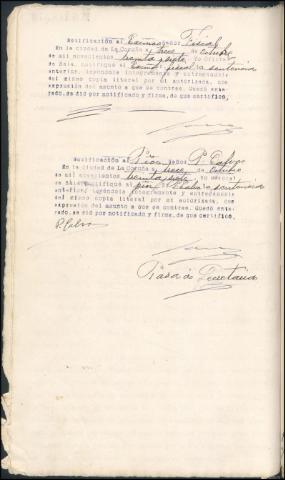 Notificación al Excmo. señor Fiscal
En la ciudad de La Coruña a trece de Octubre
de mil novecientos treinta y siete yo Oficial
de Sala, notifiqué al Excmo. fiscal la sentencia
anterior, leyéndole íntegramente y entregándole
del mismo copia literal por mí autorizada, con
expresión del asunto a que se contrae. Quedó ente-
rado, se dió por notificado y firma, de que certifico.
Notificación al señor P.
En la ciudad de La Coruña a trece de Octubre
de mil novecientos treinta y siete yo Oficial
de Sala, notifiqué al la sentencia
anterior, leyéndole íntegramente y entregándole
del mismo copia literal por mí autorizada, con
expresión del asunto a que se contrae. Quedó ente-
rado, se dió por notificado y firma, de que certifico.
Pasa á Secretaría